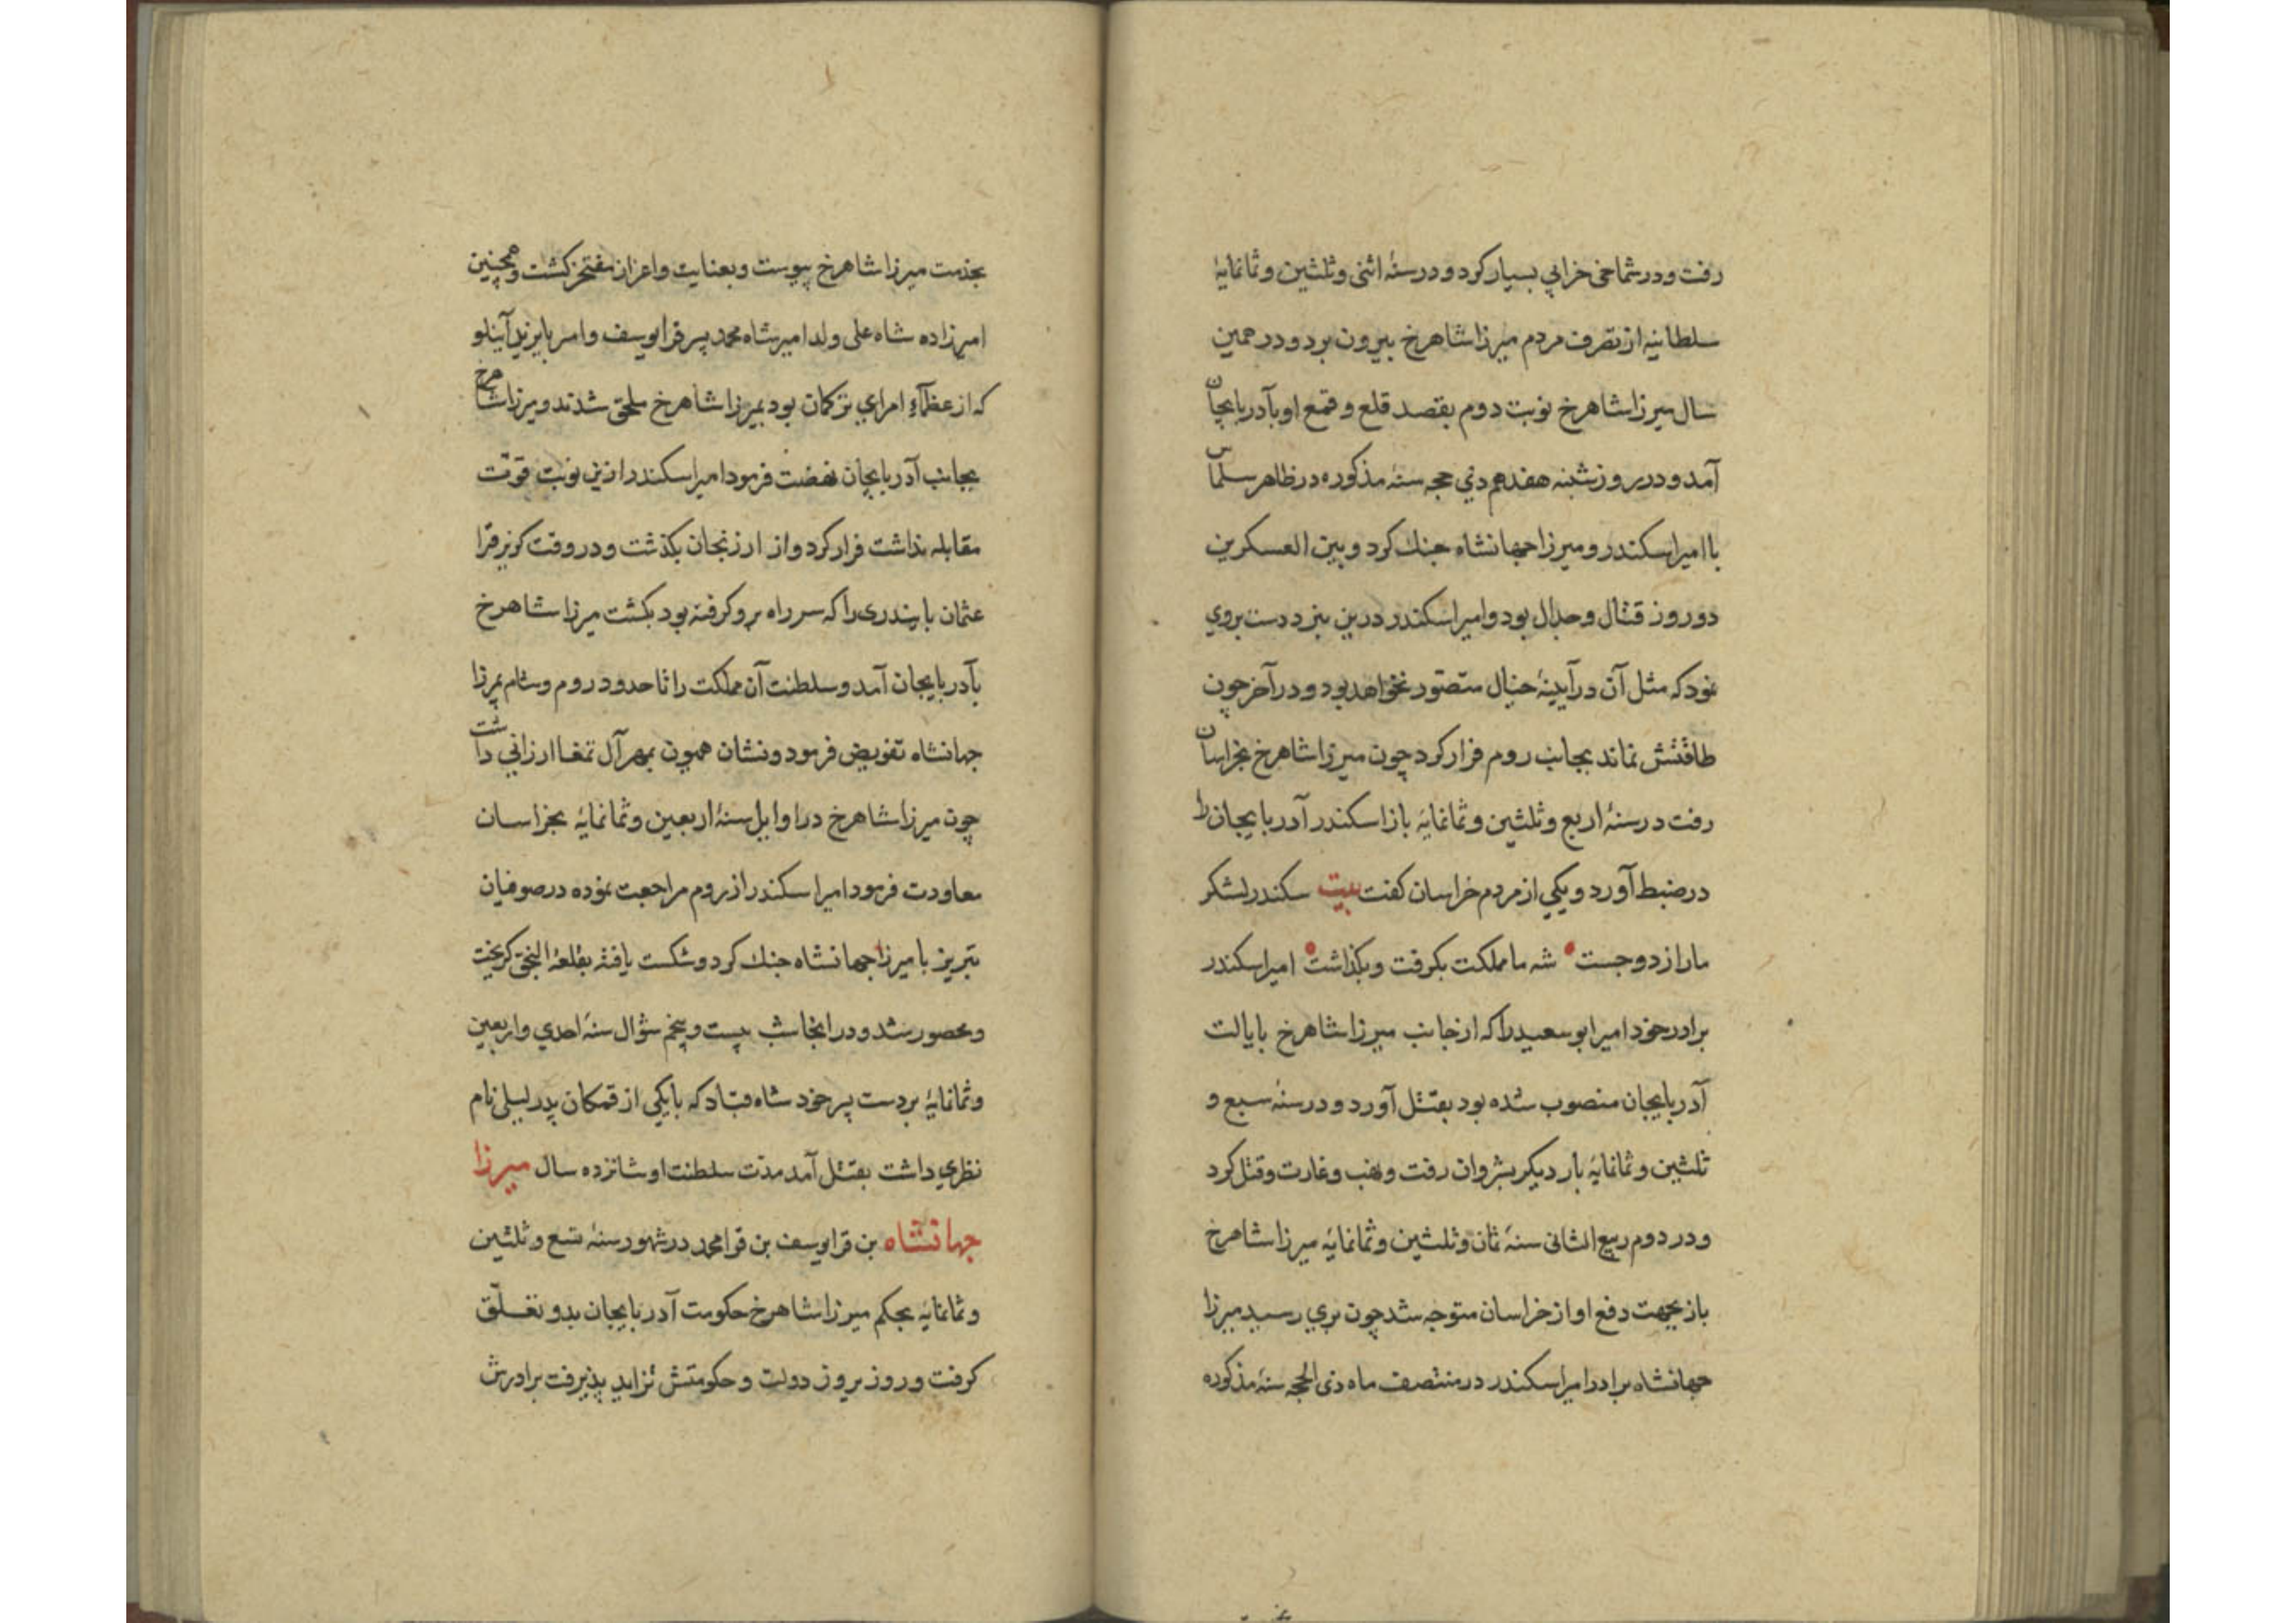 رفت و در شماخی خرابی بسیار کرد و در سنهٔ اثنی و ثلثین و ثمانمایهٔ
سلطانیه از تصرف مردم میرزا شاهرخ بیرون برد و در همین
سال میرزا شاهرخ نوبت دوم بقصد قلع و قمع او بآدربایجان
آمد و در روز شنبه هفدهم ذی حجه سنهٔ مذکوره در ظاهر سلماس
با امیر اسکندر و میرزا جهانشاه جنك کرد و بین العسکرین
دو روز قتال و جدال بود و امیر اسکندر درین نبرد دست بردی
نمود که مثل آن در آیینهٔ خیال متصّور نخواهد بود و در آخر چون
طاقتش نماند بجانب روم فرار کرد چون میرزا شاهرخ بخراسان
رفت در سنهٔ اربع و ثلثین و ثمانمایهٔ باز اسکندر آدربایجان را
در ضبط آورد و یکی از مردم خراسان کفت بیت سکندر لشکر
ما را زد و جست شه ما مملکت بکرفت و بکذاشت امیر اسکندر
برادر خود امیر ابو سعید را که از جانب میرزا شاهرخ بایالت
آدربایجان منصوب شده بود بقتل آورد و در سنهٔ سبع و
ثلثین و ثمانمایهٔ بار دیکر بشروان رفت و نهب و غارت و قتل کرد
و در دوم ربیع الثانی سنهٔ ثمان و ثلثین و ثمانمایهٔ میرزا شاهرخ
باز بجهت دفع او از خراسان متوجه شد چون بری رسید میرزا
جهانشاه برادر امیر اسکندر در منتصف ماه ذی الحجه سنهٔ مذکوره
بخدمت میرزا شاهرخ پیوست و بعنایت و اعزاز مفتخر کشت و همچنین
امیرزاده شاه علی ولد امیر شاه محمد پسر قرا یوسف و امیر بایزید آینلو
که از عظمآءِ امرای ترکمان بود بمیرزا شاهرخ ملحق شدند و میرزا شاهرخ
بجانب آدربایجان نهضت فرمود امیر اسکندر ازین نوبت قوّت
مقابله نداشت فرار کرد و از ارزنجان بکذشت و در وقت کریز قرا
عثمان بایندری را که سر راه برو کرفته بود بکشت میرزا شاهرخ
بآدربایجان آمد و سلطنت آن مملکت را تا حدود روم و شام بمیرزا
جهانشاه تفویض فرمود و نشان همیون بمهر آل تمغا ارزانی داشت
چون میرزا شاهرخ در اوایل سنهٔ اربعین و ثمانمایهٔ بخراسان
معاودت فرمود امیر اسکندر از روم مراجعت نموده در صوفیان
تبریز با میرزا جهانشاه جنك کرد و شکست یافته بقلعهٔ النجق کریخت
و محصور شد و در انجا شب بیست و پنجم شوال سنهٔ احدی و اربعین
و ثمانمایهٔ بر دست پسر خود شاه قباد که با یکی از قمکان پدر لیلی نام
نظری داشت بقتل آمد مدّت سلطنت او شانزده سال میرزا
جهانشاه بن قرا یوسف بن قرا محمد در شهور سنهٔ تسع و ثلثین
و ثمانمایهٔ بحکم میرزا شاهرخ حکومت آدربایجان بدو تعلّق
کرفت و روز بروز دولت و حکومتش تزاید پذیرفت برادرش